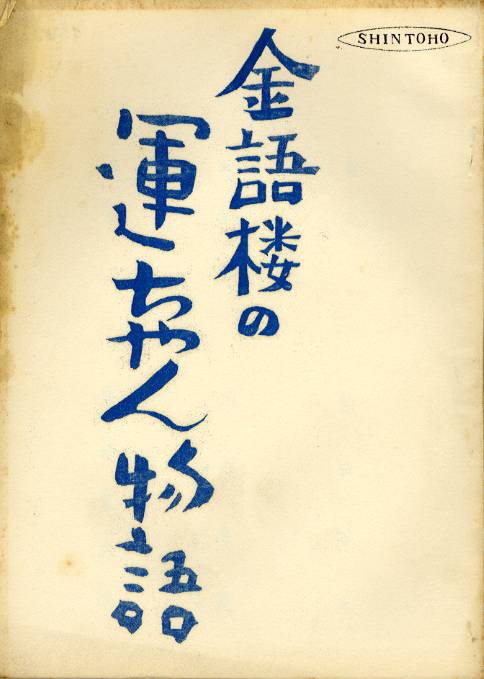 SHINTOHO
金語楼の
運ちゃん物語